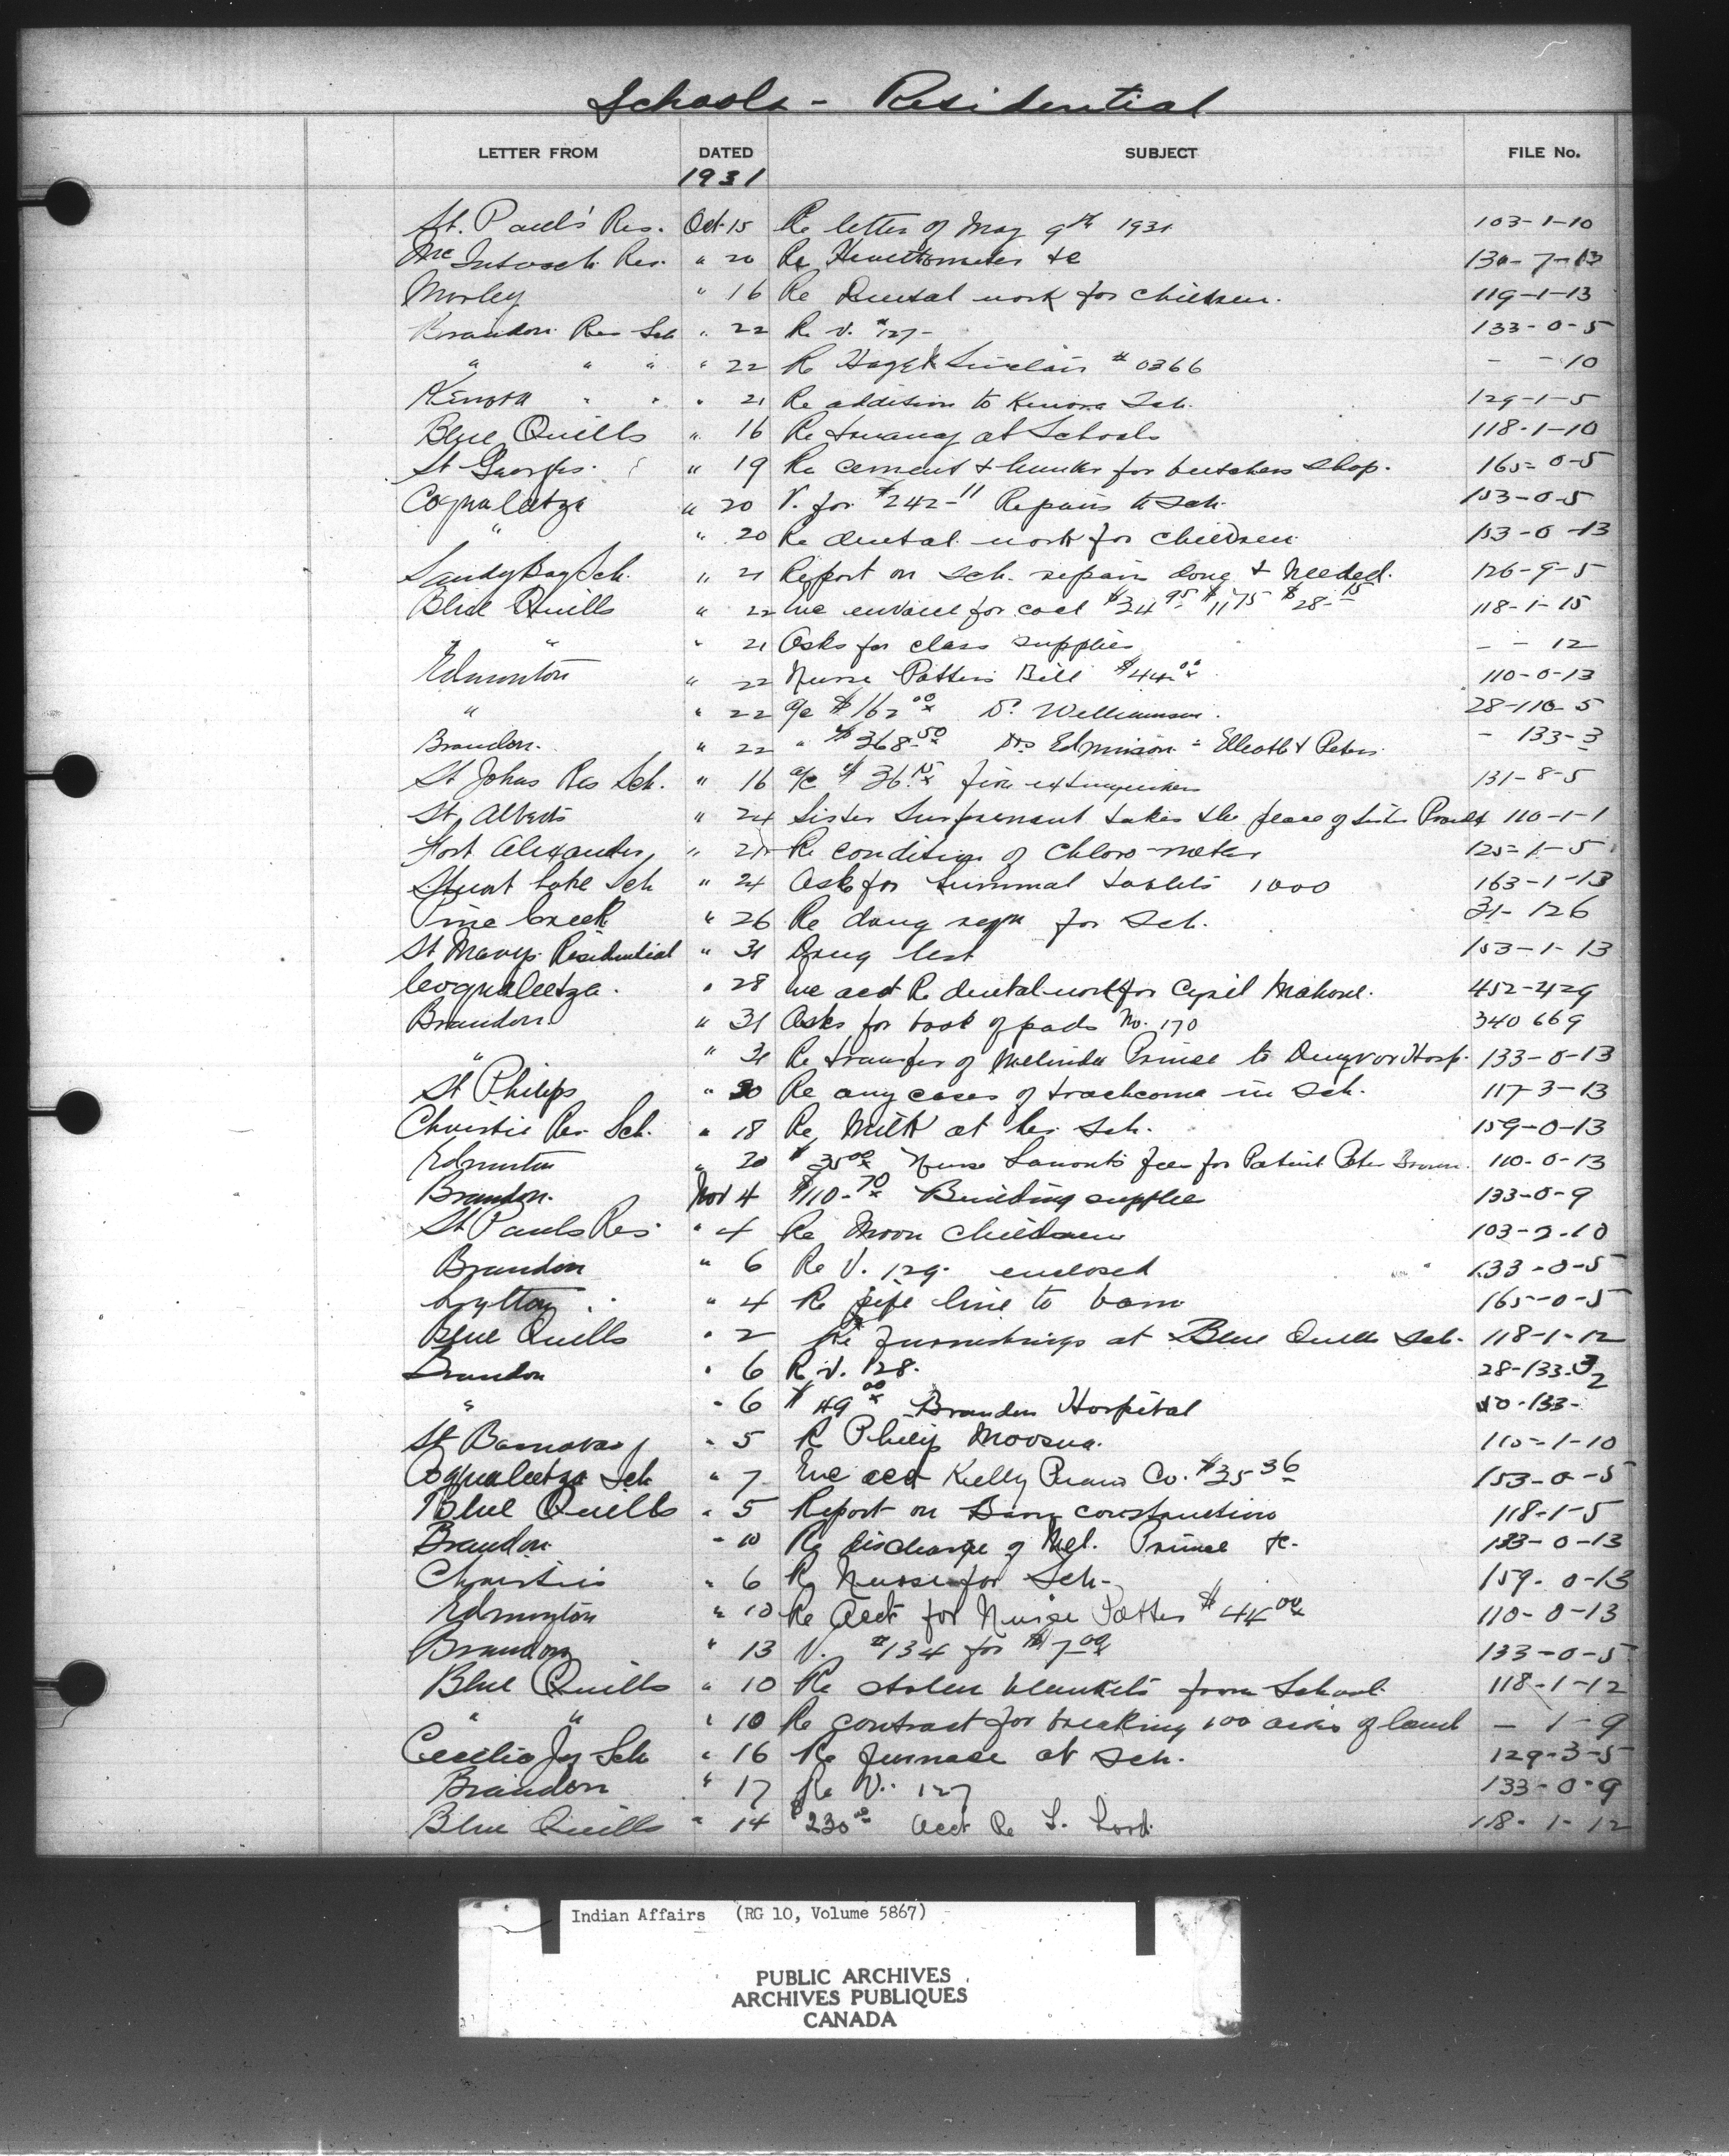 Schools - Residential
LETTER FROM DATED SUBJECT FILE No.
1931
St. Paul's Res. Oct. 15 Re letter of May 9th 1931 103-1-10
McIntosh Res. " 20 Re &c 130-7-13
Morley " 16 Re Dental work for children. 119-1-13
Brandon Res Sch " 22 Re V. #127- 133-0-5
" " " " 22 Re Sinclair # 0366 - - 10
Kenora " " " 21 Re addition to Kenora Sch. 129-1-5
Blue Quills " 16 Re truancy at Schools 118-1-10
St Georges. " 19 Re cement & lumber for butchers shop. 165-0-5
Coqualeetza " 20 V. for $242-11 Repairs to Sch. 153-0-5
" " 20 Re dental work for children 153-0-13
Sandy Bay Sch. " 21 Report on sch. repairs done & needed. 126-9-5
Blue Quills " 22 Enc for coal $34 95 $11 75 $28-15 118-1-15
" " " 21 Asks for class supplies - - 12
Edmonton " 22 Nurse Patters Bill $44.00 110-0-13
" " 22 a/c $162 00 Dr. Williamson. 28-110-5
Brandon. " 22 " $368.50 Drs Edmison = Elliott & Peters - 133-3
St Johns Res Sch. " 16 a/c $36.15 fire extinguishers 131-8-5
St. Alberts " 24 Sister Surprenant takes the place of Sister 110-1-1
Fort Alexander " 21 Re condition of Chloro-meter 125-1-5
Stuart Lake Sch " 24 Asks for tablets 1000 163-1-13
Pine Creek " 26 Re drug reqn for sch. 31-126
St Marys Residential " 31 Drug list 153-1-13
Coqualeetza. " 28 Enc acct Re dental work for Cyril 452-429
Brandon. " 31 Asks for book of pads No. 170 340 669
" " 31 Re transfer of Melinda Prince to Dynevor Hosp. 133-0-13
St Philips " 30 Re any cases of trachoma in sch. 117-3-13
Christie Res. Sch. " 18 Re Milk at his sch. 159-0-13
Edmonton " 20 $35 00 Nurse Lamonts fees for Patient Peter Brown. 110-0-13
Brandon. Nov 4 $110-70 Building supplies 133-0-9
St Pauls Res. " 4 Re Moon Children 103-2-10
Brandon " 6 Re V. 129. enclosed 133-0-5
Lytton " 4 Re pipe line to barn 165-0-5
Blue Quills " 2 Re furnishings at Blue Quills sch. 118-1-12
Brandon " 6 Re V. 128. 28-133-
" " 6 $49 00 Brandon Hospital 40-133-
St Barnabas " 5 Re Philip Moosua. 115-1-10
Coqualeetza Sch " 7 Enc acct Kelly Piano Co. $35 36 153-0-5
Blue Quills " 5 Report on Barn construction 118-1-5
Brandon " 10 Re discharge of Mel. Prince &c. 133-0-13
Christie " 6 Re Nurse for Sch- 159-0-13
Edmonton " 10 Re Acct for Nurse Patter $44 00 110-0-13
Brandon " 13 V. #134 for $17 00 133-0-5
Blue Quills " 10 Re stolen blankets from School. 118-1-12
" " " 10 Re contract for breaking 100 acres of land - 1-9
Cecilia Jef Sch " 16 Re furnace at Sch. 129-3-5
Brandon " 17 Re V. 127 133-0-9
Blue Quills " 14 $230 00 acct Re L. Lord. 118-1-12
Indian Affairs (RG 10, Volume 5867)
PUBLIC ARCHIVES
ARCHIVES PUBLIQUES
CANADA